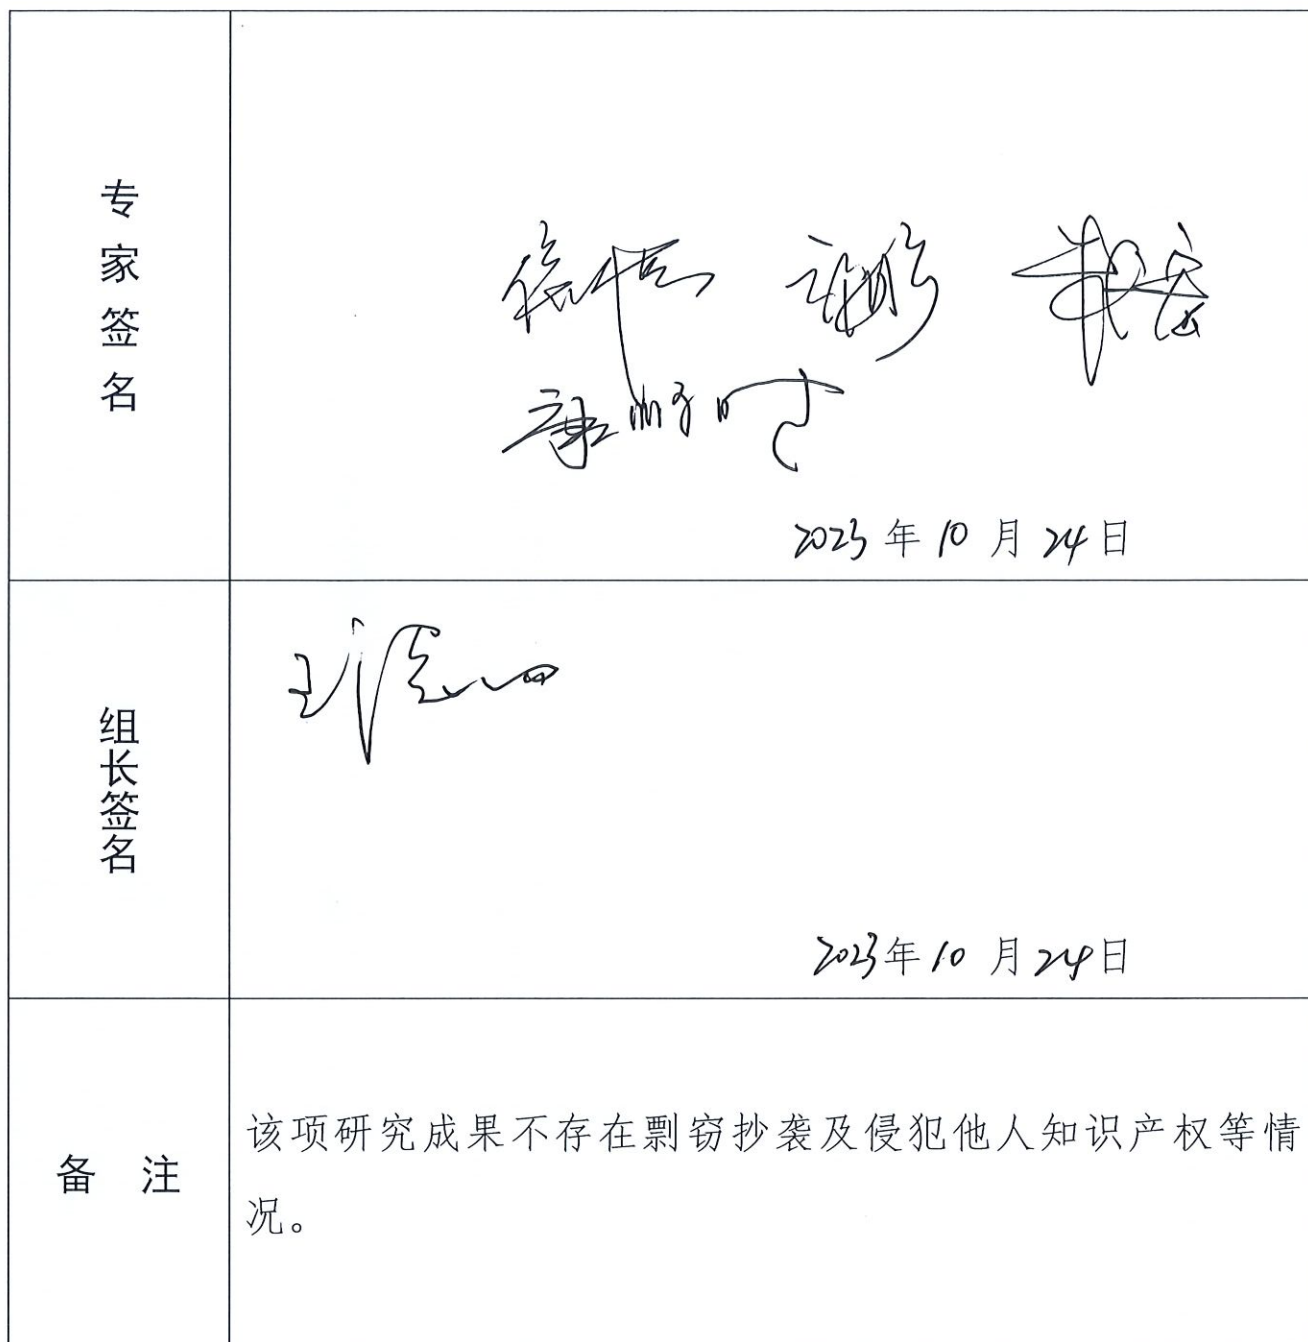 专家签名
2023年10月24日
组长签名
2023年10月24日
备 注
该项研究成果不存在剽窃抄袭及侵犯他人知识产权等情
况。